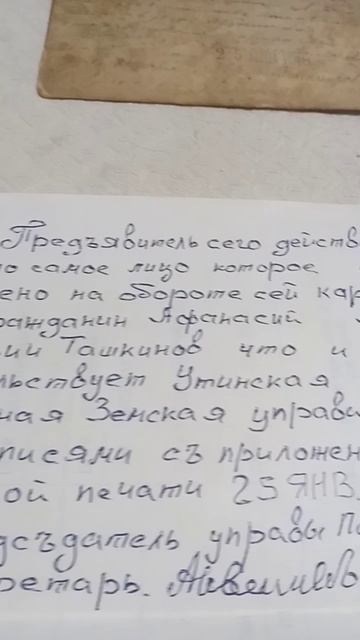 Предъявитель сего действ
о самое лицо которое
ено на обороте сей кар
ажданин Афанасий
ии Ташкинов что и
льствует Утинская
ная Земская управ
писями съ приложен
ой печати 25 ЯНВ
дсъдатель управы П
ретарь.